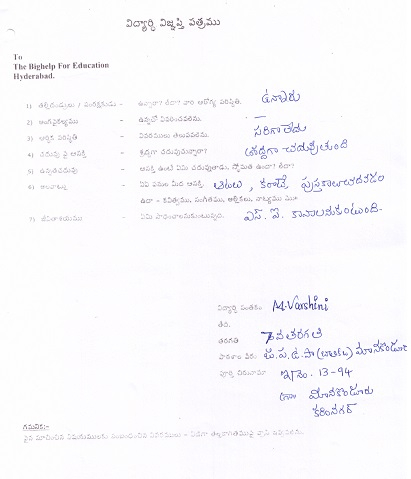 విద్యార్థి విజ్ఞప్తి పత్రము
To
The Bighelp For Education
Hyderabad.
1) తల్లిదండ్రులు / సంరక్షకుడు - ఉన్నారా? లేదా? వారి ఆరోగ్య పరిస్థితి. ఉన్నారు
2) అంగవైకల్యము - ఉన్నచో వివరించవలెను. —
3) ఆర్థిక పరిస్థితి - వివరములు తెలుపవలెను. సరిగా లేదు
4) చదువు పై ఆసక్తి - శ్రద్ధగా చదువుచున్నారా? శ్రద్దగా చదువుతుంది
5) ఉన్నతచదువు - ఆసక్తి ఉంటే ఏమి చదువుతాడు, స్తోమత ఉందా? లేదా?
6) అలవాట్లు - ఏఏ పనుల మీద ఆసక్తి. ఆటలు, కరాటే, పుస్తకాలుచదవడం
ఉదా - కవిత్వము, సంగీతము, ఆర్టికల్స్, నాట్యము
7) జీవితాశయము - ఏమి సాధించాలనుకుంటున్నది. ఎస్.ఐ. కావాలనుకుంటుంది.
విద్యార్థి సంతకం M. Varshini
తేది.
తరగతి 7వ తరగతి
పాఠశాల పేరు: జి.ప.ఉ.పా (బాలికల) మానకొండూర్
పూర్తి చిరునామా ఇ.నం. 13-94
గ్రా మానకొండూరు
కరీంనగర్
గమనిక:-